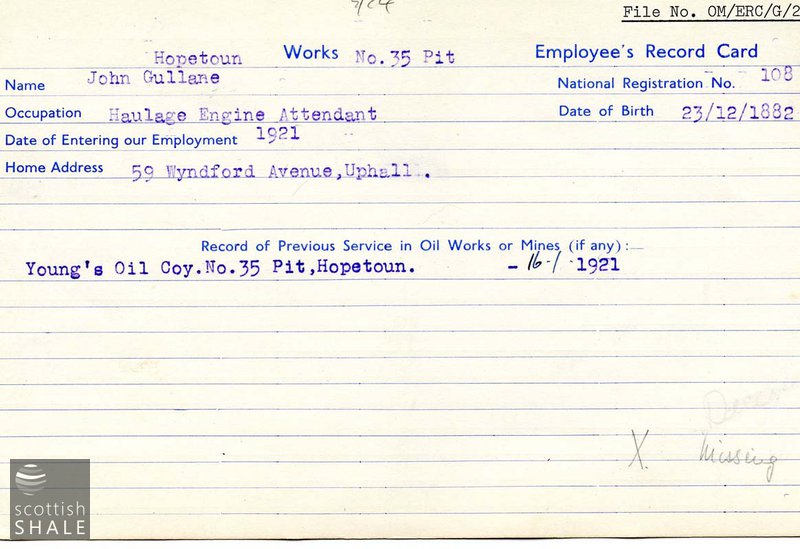 File No. OM/ERC/G/2
Hopetoun Works No.35 Pit Employee's Record Card
Name John Gullane National Registration No. 108
Occupation Haulage Engine Attendant Date of Birth 23/12/1882
Date of Entering our Employment 1921
Home Address 59 Wyndford Avenue,Uphall.
Record of Previous Service in Oil Works or Mines (if any):—
Young's Oil Coy.No.35 Pit,Hopetoun. - 16-1-1921
X Missing
scottish
SHALE